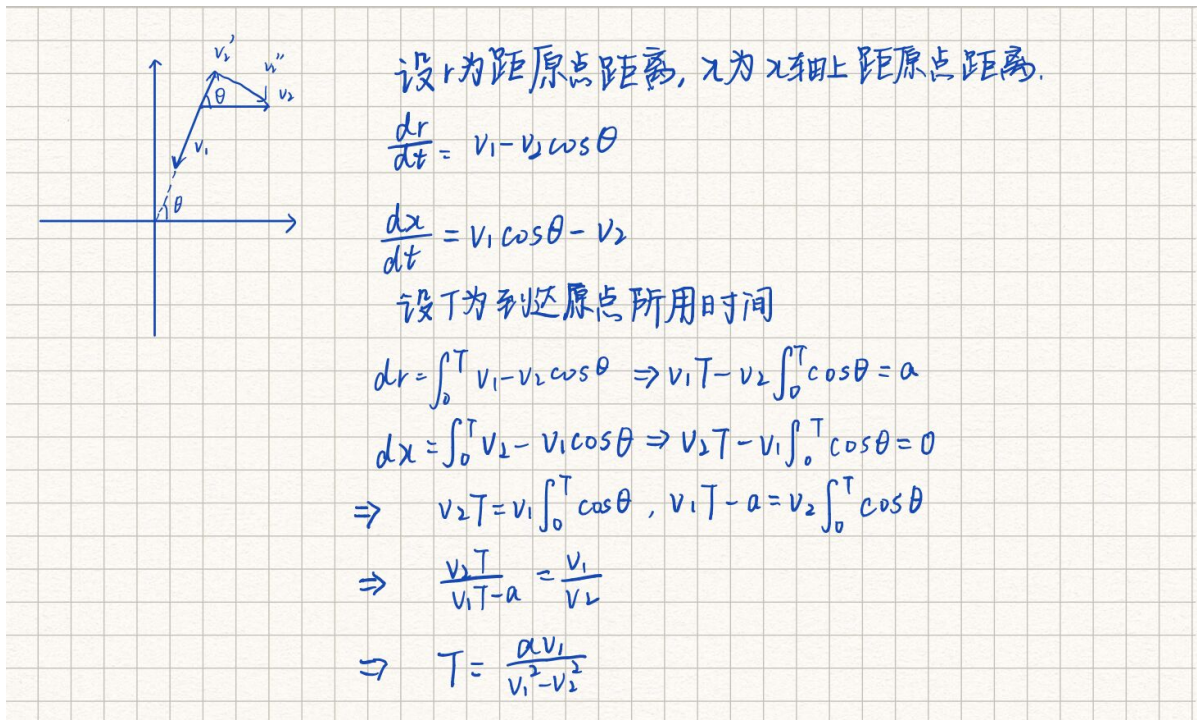 设r为距原点距离, x为x轴上距原点距离.
v₂' v₂'' v₂ θ v₁ θ
dr/dt = v₁-v₂cosθ
dx/dt = v₁cosθ-v₂
设T为到达原点所用时间
dr=∫₀ᵀ v₁-v₂cosθ ⇒ v₁T-v₂∫₀ᵀcosθ=a
dx=∫₀ᵀ v₂-v₁cosθ ⇒ v₂T-v₁∫₀ᵀcosθ=0
⇒ v₂T=v₁∫₀ᵀcosθ , v₁T-a=v₂∫₀ᵀcosθ
⇒ v₂T/(v₁T-a) = v₁/v₂
⇒ T= av₁/(v₁²-v₂²)